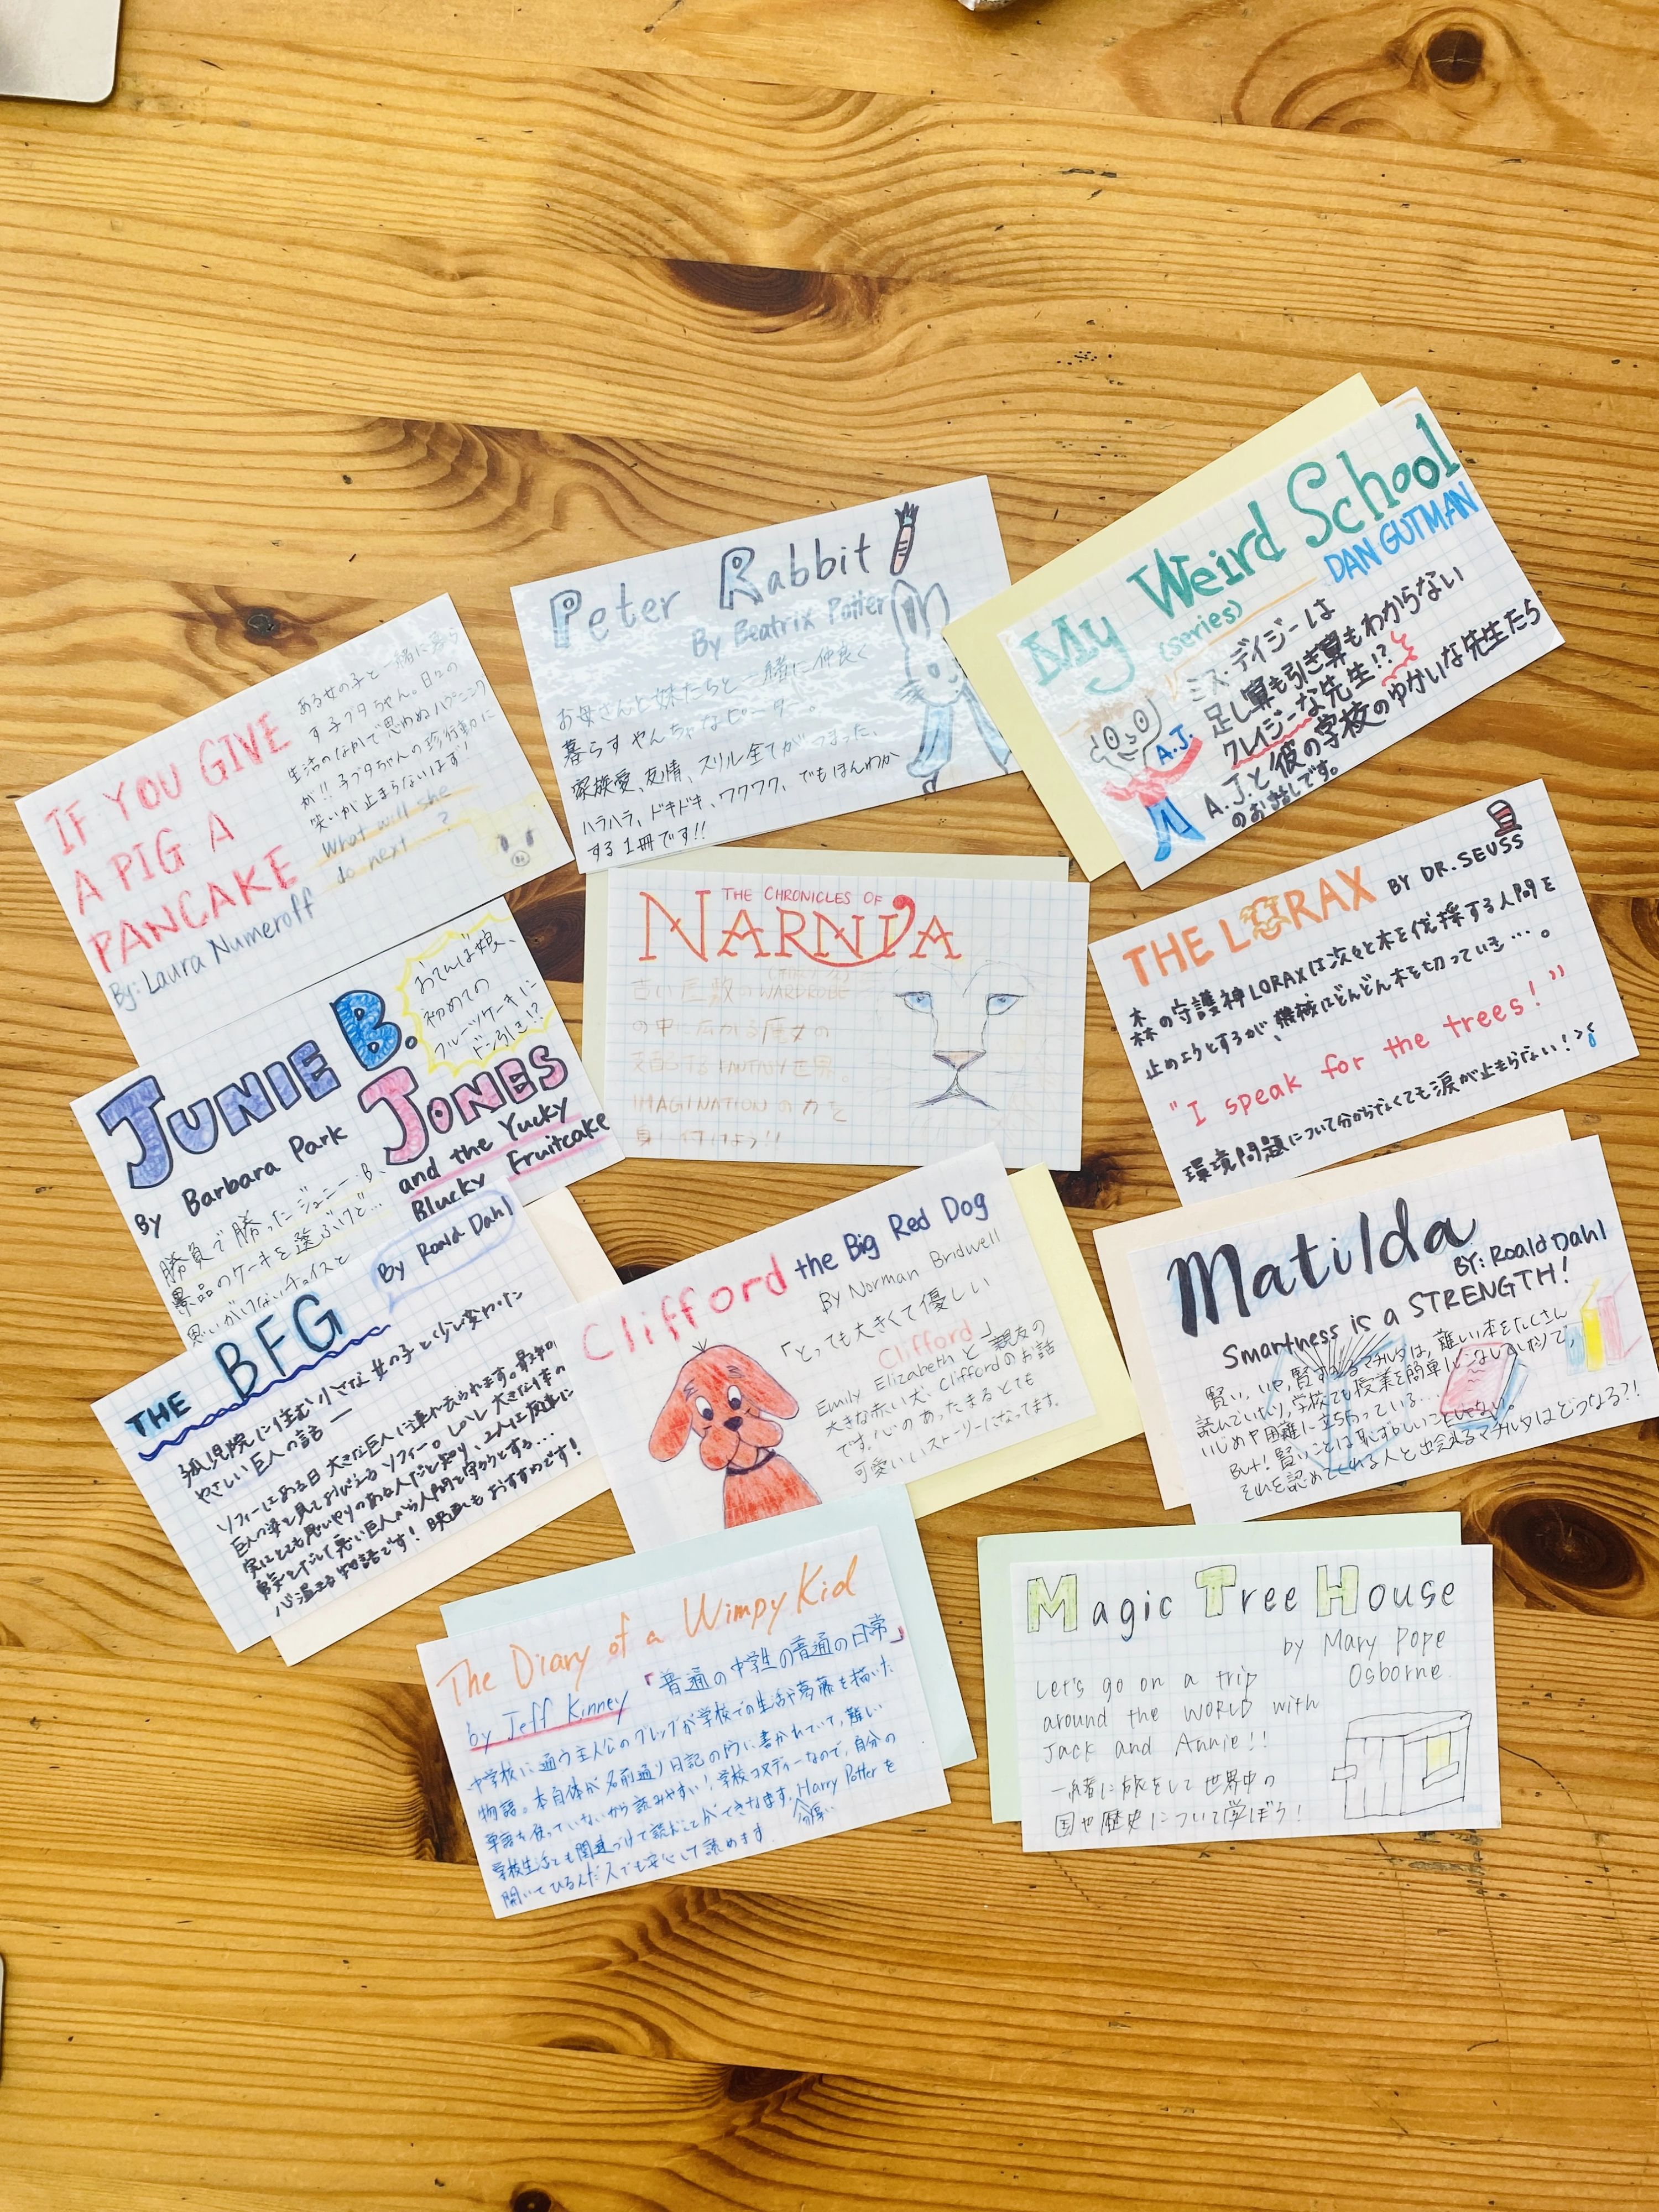 IF YOU GIVE
A PIG A
PANCAKE
By: Laura Numeroff
ある女の子と一緒に暮ら
す子ブタちゃん。日々の
生活のなかで思わぬハプニング
が!! 子ブタちゃんの珍行動に
笑いが止まらないはず!
What will she
do next...?
Peter Rabbit
By Beatrix Potter
お母さんと妹たちと一緒に仲良く
暮らすやんちゃなピーター。
家族愛、友情、スリル全てがつまった、
ハラハラ、ドキドキ、ワクワク、でもほんわか
する1冊です!!
My Weird School
(series)
DAN GUTMAN
ミス・デイジーは
足し算も引き算もわからない
クレイジーな先生!?
A.J.と彼の学校のゆかいな先生たち
のお話しです。
A.J.
JUNIE B.
JONES
By Barbara Park
and the Yucky
Blucky Fruitcake
おてんば娘、
初めての
フルーツケーキに
ドン引き!?
勝負で勝ったジュニー・B、
景品のケーキを選ぶけど…
思いがけないチョイスと
THE CHRONICLES OF
NARNIA
古い屋敷のWARDROBE
の中に広がる魔女の
支配するFANTASY世界。
IMAGINATIONの力を
身に付けよう!!
THE LORAX BY DR. SEUSS
森の守護神LORAXは次々と木を伐採する人間を
止めようとするが、機械はどんどん木を切っていき…。
"I speak for the trees!"
環境問題について分からなくても涙が止まらない!
THE BFG
By Roald Dahl
孤児院に住む小さな女の子と少し変わった
やさしい巨人の話 —
ソフィーはある日大きな巨人に連れ去られます。最初は
巨人の姿を見ておびえるソフィー。しかし大きな体の
実はとても思いやりのある人だと知り、2人は友達に
勇気をだして悪い巨人から人間を守ろうとする…
心温まる物語です! 映画もおすすめです!
Clifford the Big Red Dog
By Norman Bridwell
「とっても大きくて優しい
Clifford」
Emily Elizabethと親友の
大きな赤い犬、Cliffordのお話
です。心のあったまるとても
可愛いいストーリーになってます。
Matilda
BY: Roald Dahl
Smartness is a STRENGTH!
賢い、いや、賢すぎるマチルダは、難しい本をたくさん
読んでいたり、学校でも授業を簡単にこなしい形で、
いじめや困難に立ち向っている...
But! 賢いことは恥ずかしいことじゃない。
それを認めてくれる人と出会えるマチルダはどうなる?!
The Diary of a Wimpy Kid
by Jeff Kinney 「普通の中学生の普通の日常」
中学校に通う主人公のグレッグが学校での生活や葛藤を描いた
物語。本自体が名前通り日記の内に書かれていて、難しい
単語を使っていないから読みやすい! 学校コメディーなので、自分の
学校生活とも関連づけて読むことができます。Harry Potterを
開いてひるんだ人でも安心して読めます。
分厚い
Magic Tree House
by Mary Pope
Osborne
Let's go on a trip
around the WORLD with
Jack and Annie!!
一緒に旅をして世界中の
国や歴史について学ぼう!